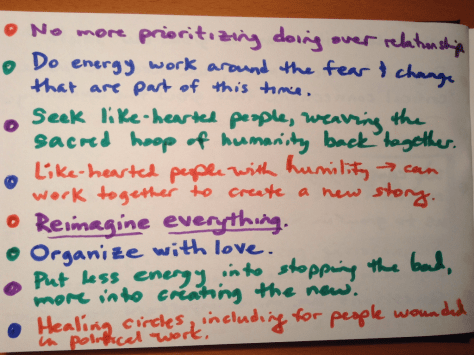 No more prioritizing doing over relationship
Do energy work around the fear & change
that are part of this time.
Seek like-hearted people, weaving the
sacred hoop of humanity back together.
Like-hearted people with humility → can
work together to create a new story.
Reimagine everything.
Organize with love.
Put less energy into stopping the bad,
more into creating the new.
Healing circles, including for people wounded
in political work.